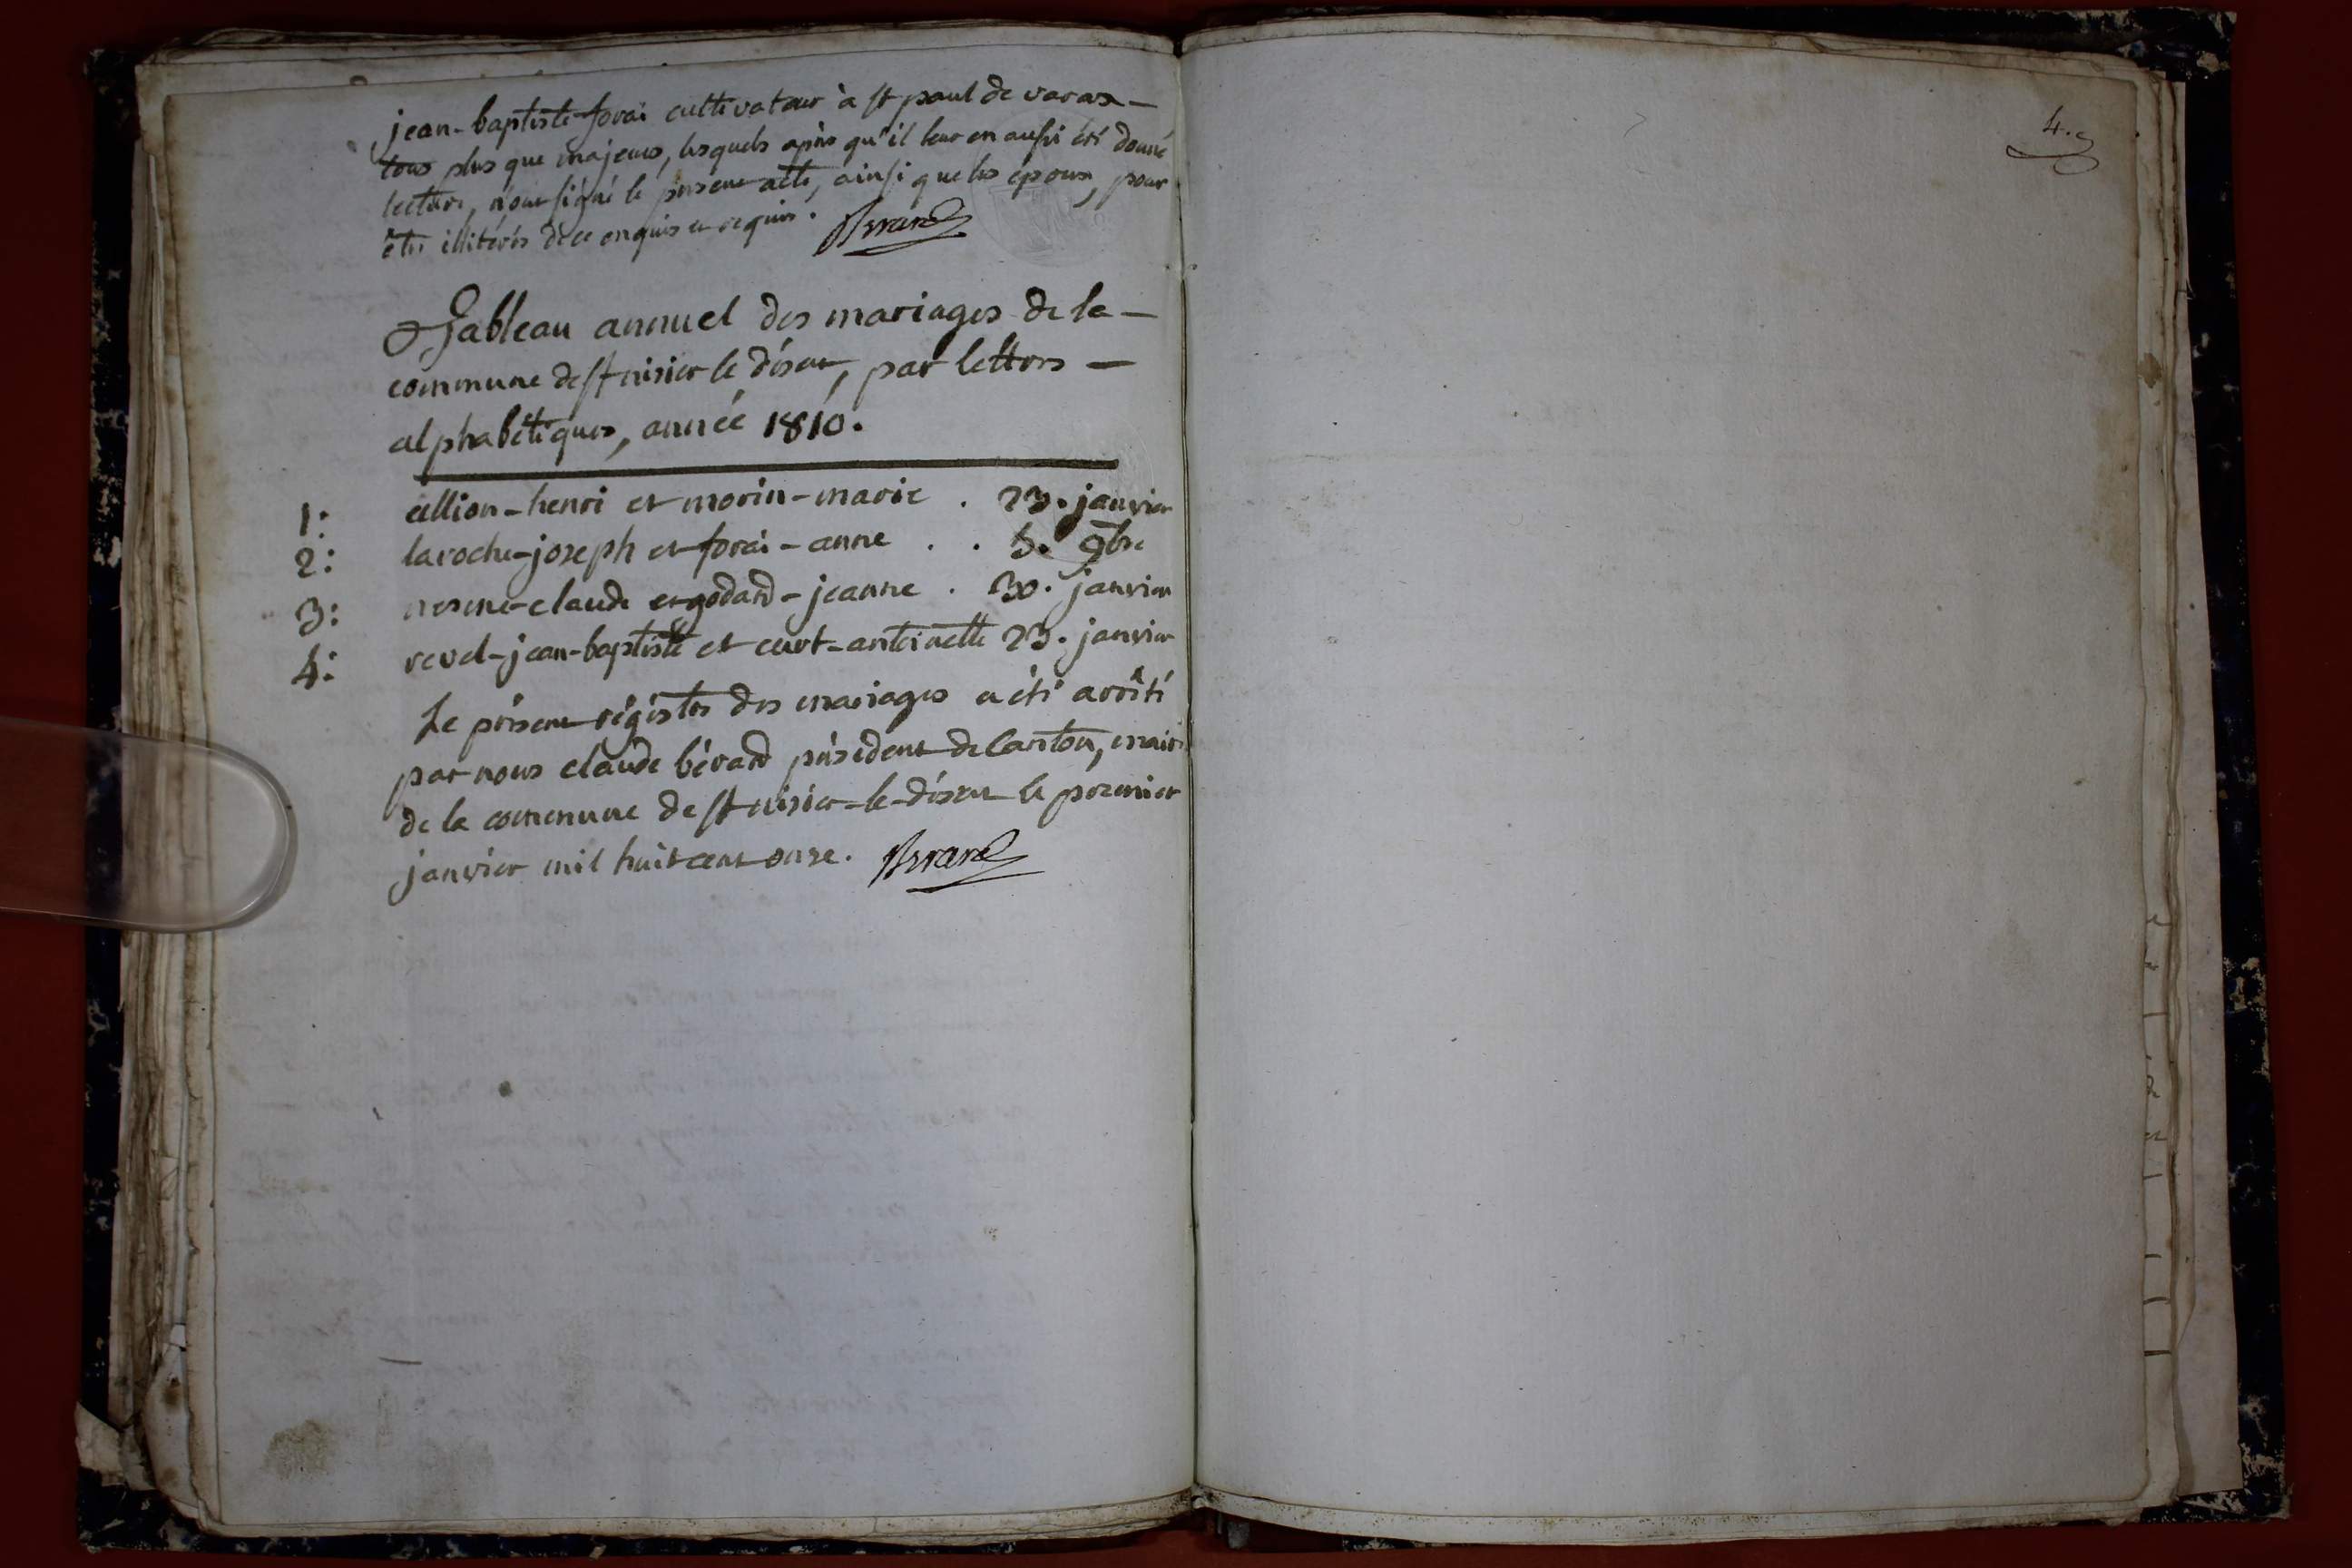 jean-baptiste forai cultivateur à st paul de varax –
tous plus que majeurs, lesquels après qu'il leur en aussi été donné
lecture, n'ont signé le présent acte, ainsi que les époux, pour
être illitérés de ce enquis et requis. Berard
Tableau annuel des mariages de la –
commune de st nisier le désert, par lettres –
alphabétiques, année 1810.
1: allion-henri et morin-marie . 23. janvier
2: laroche-joseph et forai-anne . . 5. 9bre
3: claude et godard-jeanne . 30. janvier
4: revel-jean-baptiste et curt-antoinette 23. janvier
Le présent régistre des mariages a été arrêté
par nous claude bérard président de Canton, maire
de la commune de st nisier-le-désert le premier
janvier mil huit cent onze. Berard
4.e